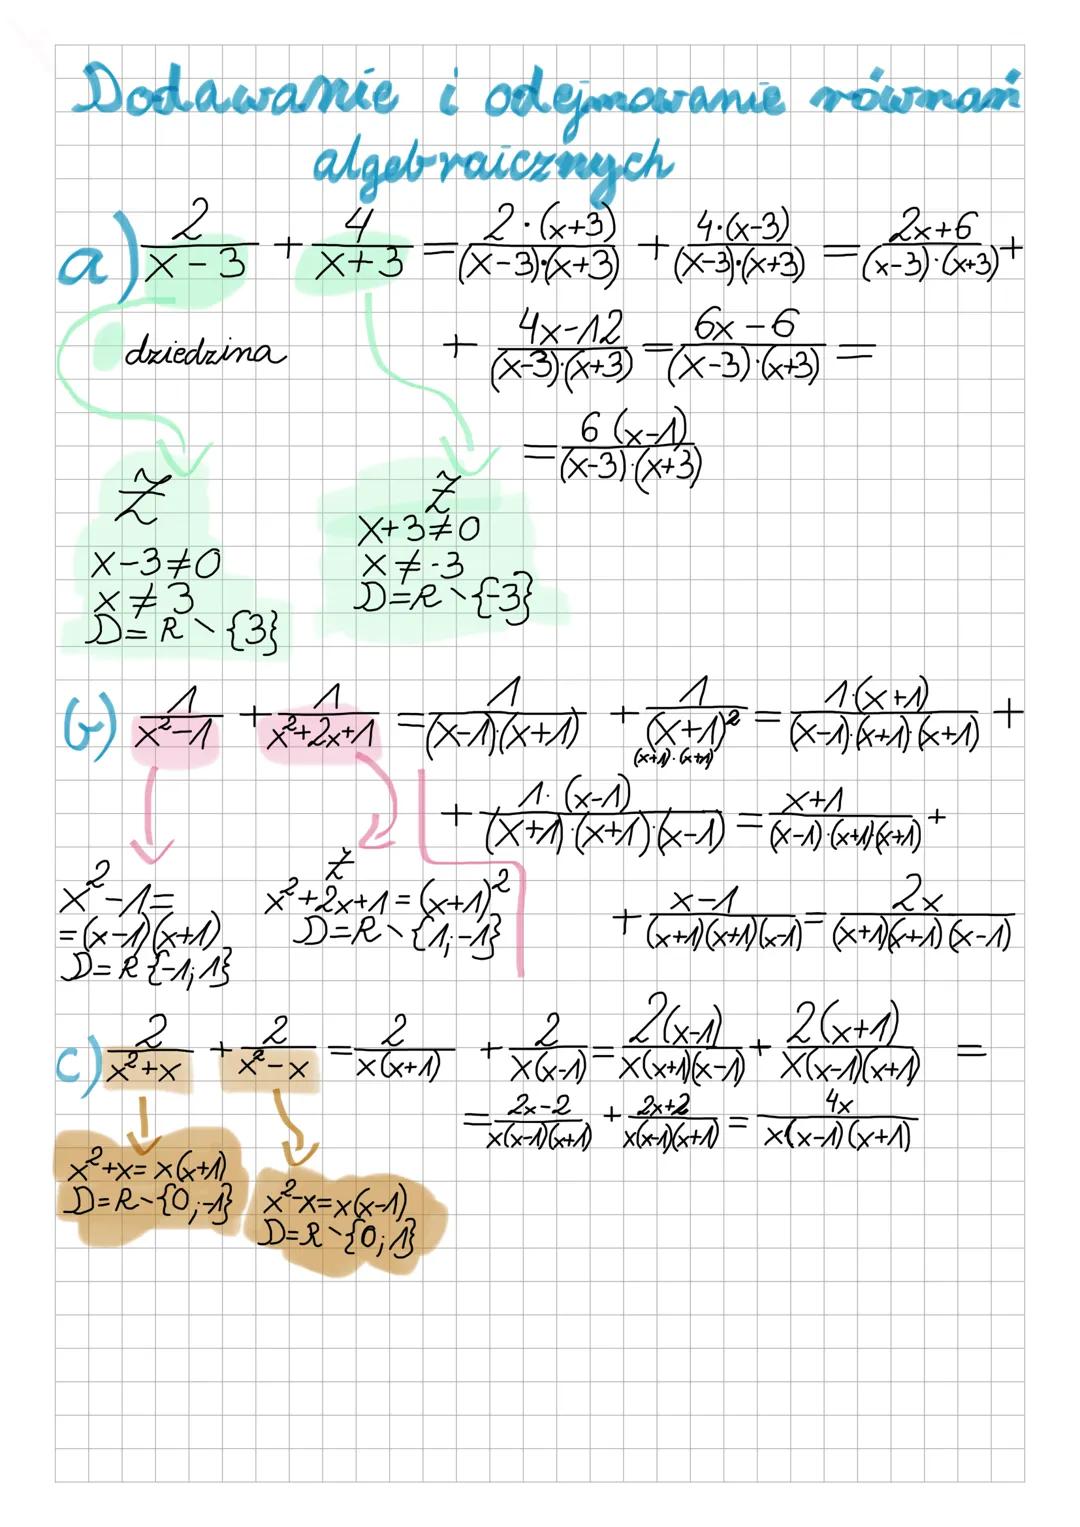 Dodawanie i odejmowanie równań
algebraicznych
a) 2/(x-3) + 4/(x+3) = 2·(x+3)/(x-3)·(x+3) + 4·(x-3)/(x-3)·(x+3) = 2x+6/(x-3)·(x+3) +
dziedzina + 4x-12/(x-3)·(x+3) = 6x-6/(x-3)·(x+3) =
= 6(x-1)/(x-3)·(x+3)
Z̃ Z̃
x-3≠0 x+3≠0
x≠3 x≠-3
D=R\{3} D=R\{-3}
b) 1/(x²-1) + 1/(x²+2x+1) = 1/(x-1)·(x+1) + 1/(x+1)² = 1·(x+1)/(x-1)·(x+1)·(x+1) +
(x+1)·(x+1)
+ 1·(x-1)/(x+1)·(x+1)·(x-1) = x+1/(x-1)·(x+1)(x+1) +
x²-1=
=(x-1)(x+1)
D=R{-1;1}
Z̃
x²+2x+1=(x+1)²
D=R\{1;-1}
+ x-1/(x+1)(x+1)(x-1) = 2x/(x+1)(x+1)(x-1)
c) 2/(x²+x) + 2/(x²-x) = 2/x(x+1) + 2/x(x-1) = 2(x-1)/x(x+1)(x-1) + 2(x+1)/x(x-1)(x+1) =
= 2x-2/x(x-1)(x+1) + 2x+2/x(x-1)(x+1) = 4x/x(x-1)(x+1)
x²+x=x(x+1)
D=R\{0;-1}
x²-x=x(x-1)
D=R\{0;1}